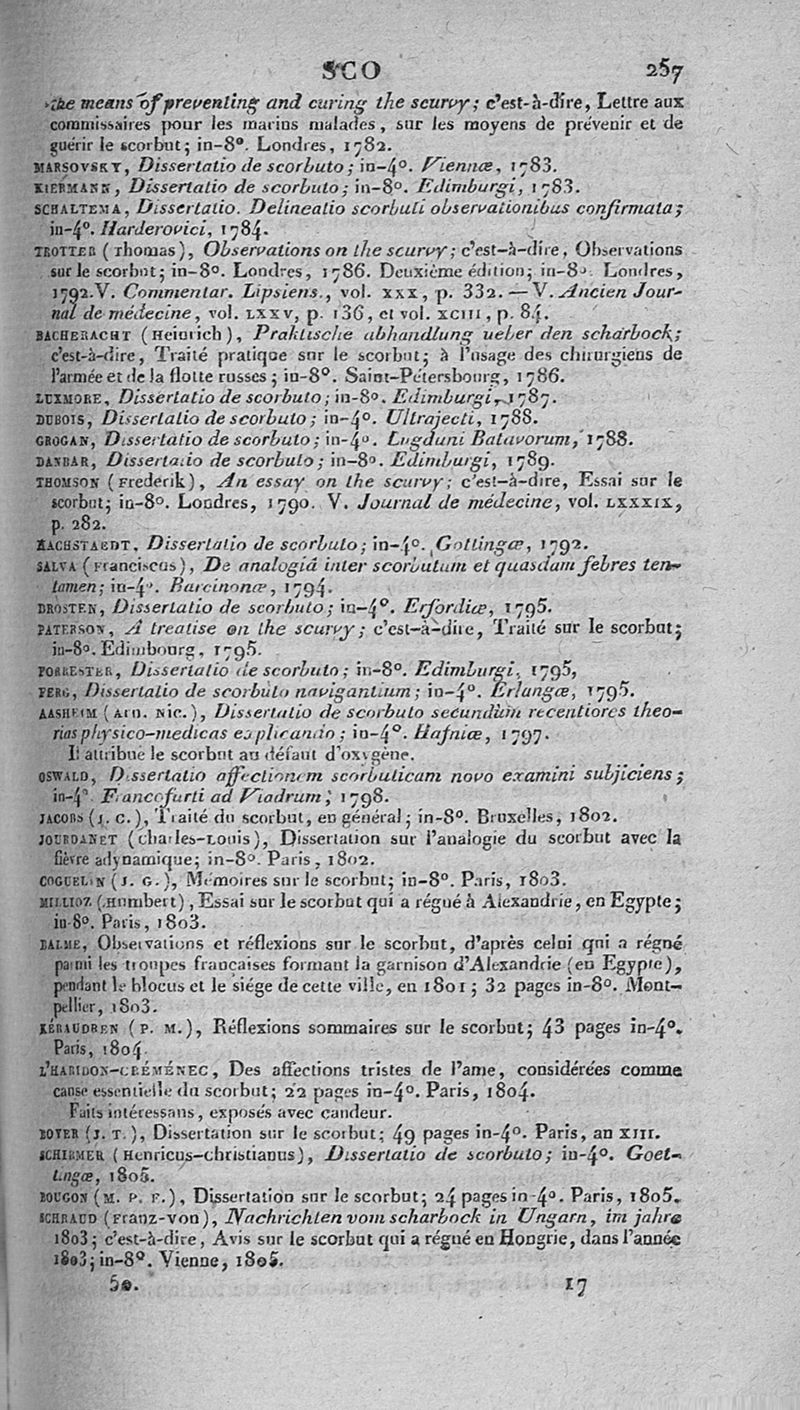 SCO 257
the means of preventing and curing the scurvy; c'est-à-dire, Lettre aux
commissaires pour les marins malades, sur les moyens de prévenir et de
guérir le scorbut; in-8°. Londres, 1782.
MARSOVSKY, Dissertatio de scorbuto; in-4°. Viennæ, 1783.
KIERMANN, Dissertatio de scorbuto; in-8°. Edimburgi, 1783.
SCHALTEMA, Dissertatio. Delineatio scorbuti observationibus confirmata;
in-4°. Harderovici, 1784.
TROTTER (Thomas), Observations on the scurvy; c'est-à-dire, Observations
sur le scorbut; in-8°. Londres, 1786. Deuxième édition; in-8°. Londres,
1792. V. Commentar. Lipsiens., vol. XXX, p. 332. — V. Ancien Jour-
nal de médecine, vol. LXXV, p. 136, et vol. XCIII, p. 84.
BACHERACHT (Heinrich), Praktische abhandlung ueber den scharbock;
c'est-à-dire, Traité pratique sur le scorbut; à l'usage des chirurgiens de
l'armée et de la flotte russes; in-8°. Saint-Pétersbourg, 1786.
LUXMORE, Dissertatio de scorbuto; in-8°. Edimburgi, 1787.
DUBOIS, Dissertatio de scorbuto; in-4°. Ultrajecti, 1788.
GROGAN, Dissertatio de scorbuto; in-4°. Lugduni Batavorum, 1788.
DANBAR, Dissertatio de scorbuto; in-8°. Edimburgi, 1789.
THOMSON (Frederik), An essay on the scurvy; c'est-à-dire, Essai sur le
scorbut; in-8°. Londres, 1790. V. Journal de médecine, vol. LXXXIX,
p. 282.
HACHSTAEDT, Dissertatio de scorbuto; in-4°. Gottingæ, 1792.
SALVA (Franciscus), De analogiâ inter scorbutum et quasdam febres ten-
tamen; in-4°. Barcinonæ, 1794.
DROSTEN, Dissertatio de scorbuto; in-4°. Erfordiæ, 1795.
PATERSON, A treatise on the scurvy; c'est-à-dire, Traité sur le scorbut;
in-8°. Edimbourg, 1795.
FORRESTER, Dissertatio de scorbuto; in-8°. Edimburgi, 1795,
FERG, Dissertatio de scorbuto navigantium; in-4°. Erlangæ, 1795.
AASHEIM (Arn. Nic.), Dissertatio de scorbuto secundùm recentiores theo-
rias physico-medicas explicando; in-4°. Hafniæ, 1797.
Il attribue le scorbut au défaut d'oxygène.
OSWALD, Dissertatio affectionem scorbuticam novo examini subjiciens;
in-4°. Francofurti ad Viadrum, 1798.
JACOBS (J. C.), Traité du scorbut, en général; in-8°. Bruxelles, 1802.
JOURDANET (Charles-Louis), Dissertation sur l'analogie du scorbut avec la
fièvre adynamique; in-8°. Paris, 1802.
COGUELIN (J. G.), Mémoires sur le scorbut; in-8°. Paris, 1803.
MILLIOZ (Humbert), Essai sur le scorbut qui a régné à Alexandrie, en Egypte;
in-8°. Paris, 1803.
BALME, Observations et réflexions sur le scorbut, d'après celui qui a régné
parmi les troupes françaises formant la garnison d'Alexandrie (en Egypte),
pendant le blocus et le siége de cette ville, en 1801; 32 pages in-8°. Mont-
pellier, 1803.
KÉRAUDREN (P. M.), Réflexions sommaires sur le scorbut; 43 pages in-4°.
Paris, 1804.
L'HARIDON-CRÉMÉNEC, Des affections tristes de l'ame, considérées comme
cause essentielle du scorbut; 22 pages in-4°. Paris, 1804.
Faits intéressans, exposés avec candeur.
BOYER (J. T.), Dissertation sur le scorbut; 49 pages in-4°. Paris, an XIII.
SCHIRMER (Henricus-Christianus), Dissertatio de scorbuto; in-4°. Goet-
tingæ, 1805.
BOUGON (M. P. F.), Dissertation sur le scorbut; 24 pages in-4°. Paris, 1805.
SCHRAUD (Franz-von), Nachrichten vom scharbock in Ungarn, im jahre
1803; c'est-à-dire, Avis sur le scorbut qui a régné en Hongrie, dans l'année
1803; in-8°. Vienne, 1805.
50. 17